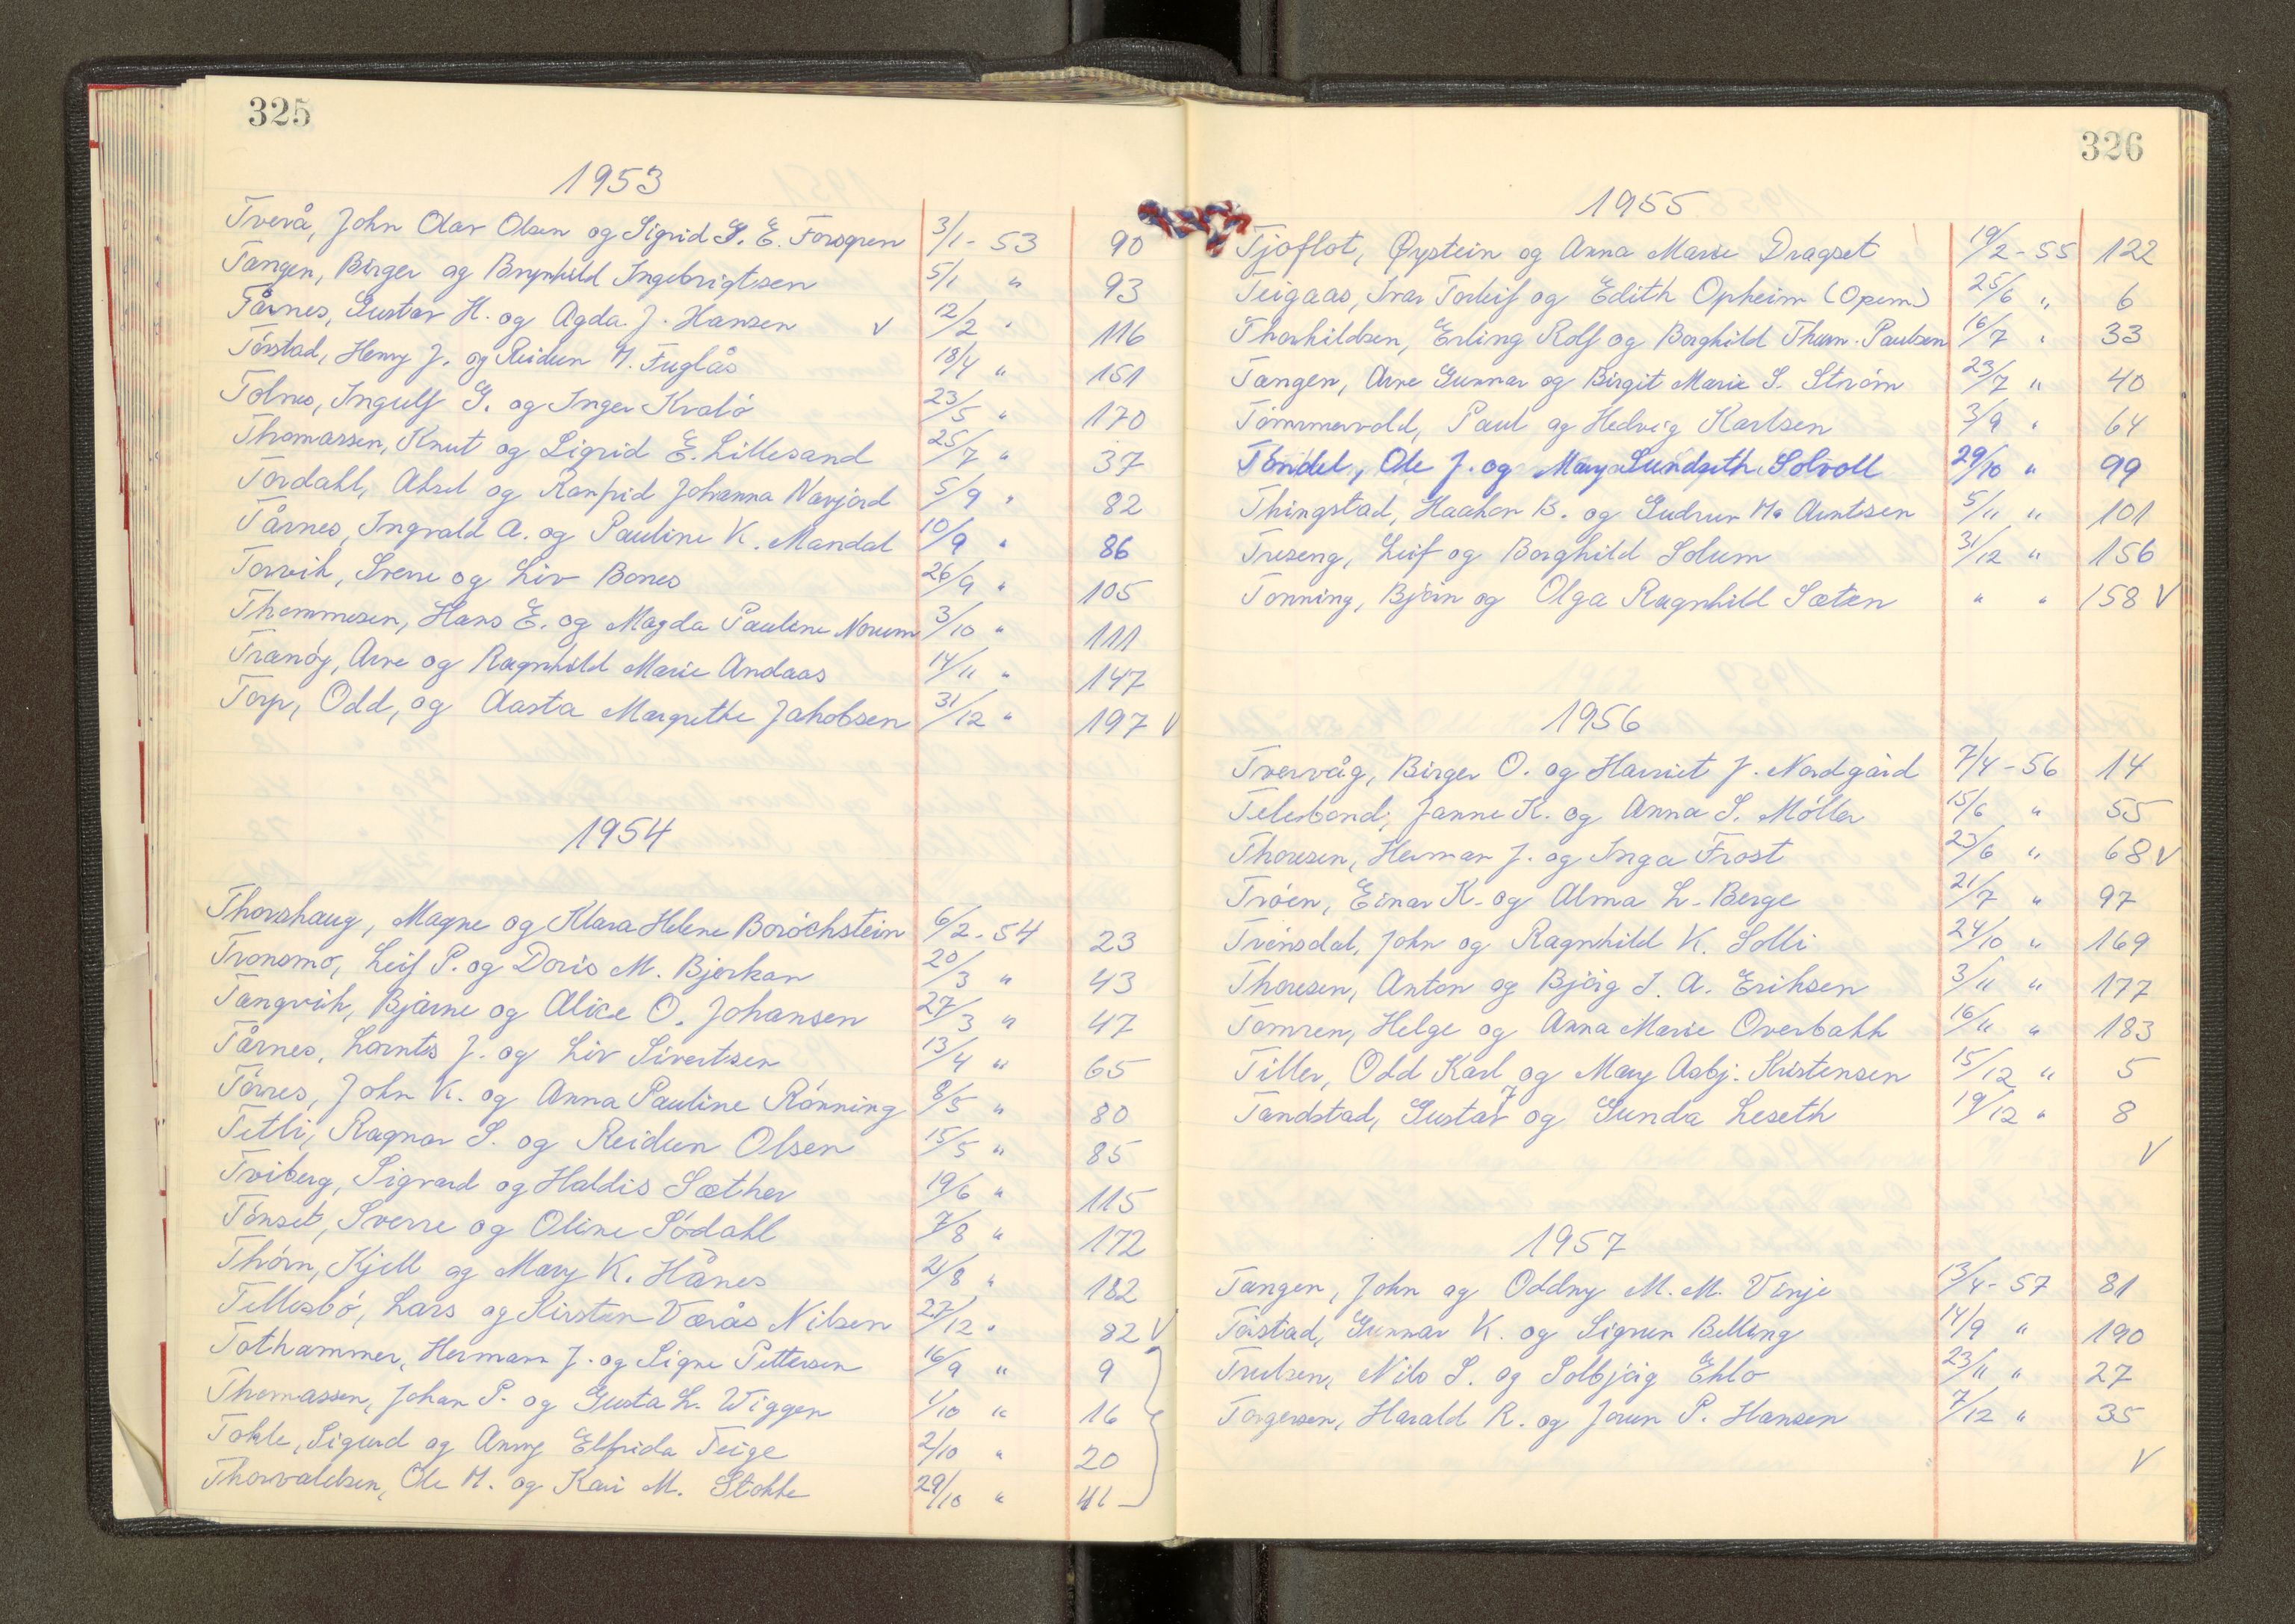 325
1953
Tverå, John Olav Olsen og Sigrid G. E. Forsgren 3/1 - 53 90
Tangen, Birger og Brynhild Ingebrigtsen 5/1 " 93
Tårnes, Gustav H. og Agda J. Hansen v 12/2 " 116
Törstad, Henry J. og Reidun M. Fuglås 18/4 " 151
Tolnes, Ingulf G. og Inger Kvalö 23/5 " 170
Thomassen, Knut og Sigrid E. Lillesand 25/7 " 37
Tordahl, Aksel og Ranfrid Johanna Navjord 5/9 " 82
Tårnes, Ingvald A. og Pauline K. Mandal 10/9 " 86
Torvik, Sverre og Liv Bones 26/9 " 105
Thommesen, Hans E. og Magda Pauline Norum 3/10 " 111
Tranöy, Arne og Ragnhild Marie Andaas 14/11 " 147
Torp, Odd, og Aasta Margrethe Jakobsen 31/12 " 197 V
1954
Thorshaug, Magne og Klara Helene Boröchstein 6/2 - 54 23
Tronsmo, Leif P. og Doris M. Bjerkan 20/3 " 43
Tangvik, Bjarne og Alice O. Johansen 27/3 " 47
Tårnes, Lornts J. og Liv Sivertsen 13/4 " 65
Törres, John K. og Anna Pauline Rönning 8/5 " 80
Tetli, Ragnar S. og Reidun Olsen 15/5 " 85
Tviberg, Sigvard og Haldis Sæther 19/6 " 115
Tönset, Sverre og Oline Södahl 7/8 " 172
Thörn, Kjell og Mary K. Hånes 21/8 " 182
Tellesbö, Lars og Kirsten Værås Nilsen 27/12 " 82 V
Tothammer, Hermann J. og Signe Pettersen 16/9 " 9
Thomassen, Johan P. og Gusta L. Wiggen 1/10 " 16
Tokle, Sigurd og Anny Elfrida Teige 2/10 " 20
Thorvaldsen, Ole M. og Kari M. Stokke 29/10 " 41
326
1955
Tjoflot, Øystein og Anna Marie Dragset 19/2 - 55 122
Teigaas, Ivar Torleif og Edith Opheim (Opem) 25/6 " 6
Thorhildsen, Erling Rolf og Borghild Thurn. Paulsen 16/7 " 33
Tangen, Arne Gunnar og Birgit Marie S. Ström 23/7 " 40
Tömmervold, Paul og Hedvig Karlsen 3/9 " 64
Töndel, Ole J. og Mary Sundseth Solvoll 29/10 " 99
Thingstad, Haakon B. og Gudrun M. Arntsen 5/11 " 101
Treseng, Leif og Borghild Solum 31/12 " 156
Tonning, Björn og Olga Ragnhild Sæten " " 158 V
1956
Tvervåg, Birger O. og Harriet J. Nordgård 7/4 - 56 14
Telesbond, Janne K. og Anna S. Möller 15/6 " 55
Thoresen, Herman J. og Inga Frost 23/6 " 68 V
Tröen, Einar K. og Alma L. Berge 21/7 " 97
Trönsdal, John og Ragnhild K. Solli 24/10 " 169
Thoresen, Anton og Björg I. A. Eriksen 3/11 " 177
Tomren, Helge og Anna Marie Overbakk 16/11 " 183
Tiller, Odd Karl og Mary Asbj. Kristensen 15/12 " 5
Tandstad, Gustav J og Gunda Leseth 19/12 " 8
V
1957
Tangen, John og Oddny M. M. Vinje 13/4 - 57 81
Törstad, Gunnar K. og Sigrun Belling 14/9 " 190
Trulsen, Nils S. og Solbjörg Ehlo 23/11 " 27
Torgersen, Harald R. og Jorun P. Hansen 7/12 " 35
V